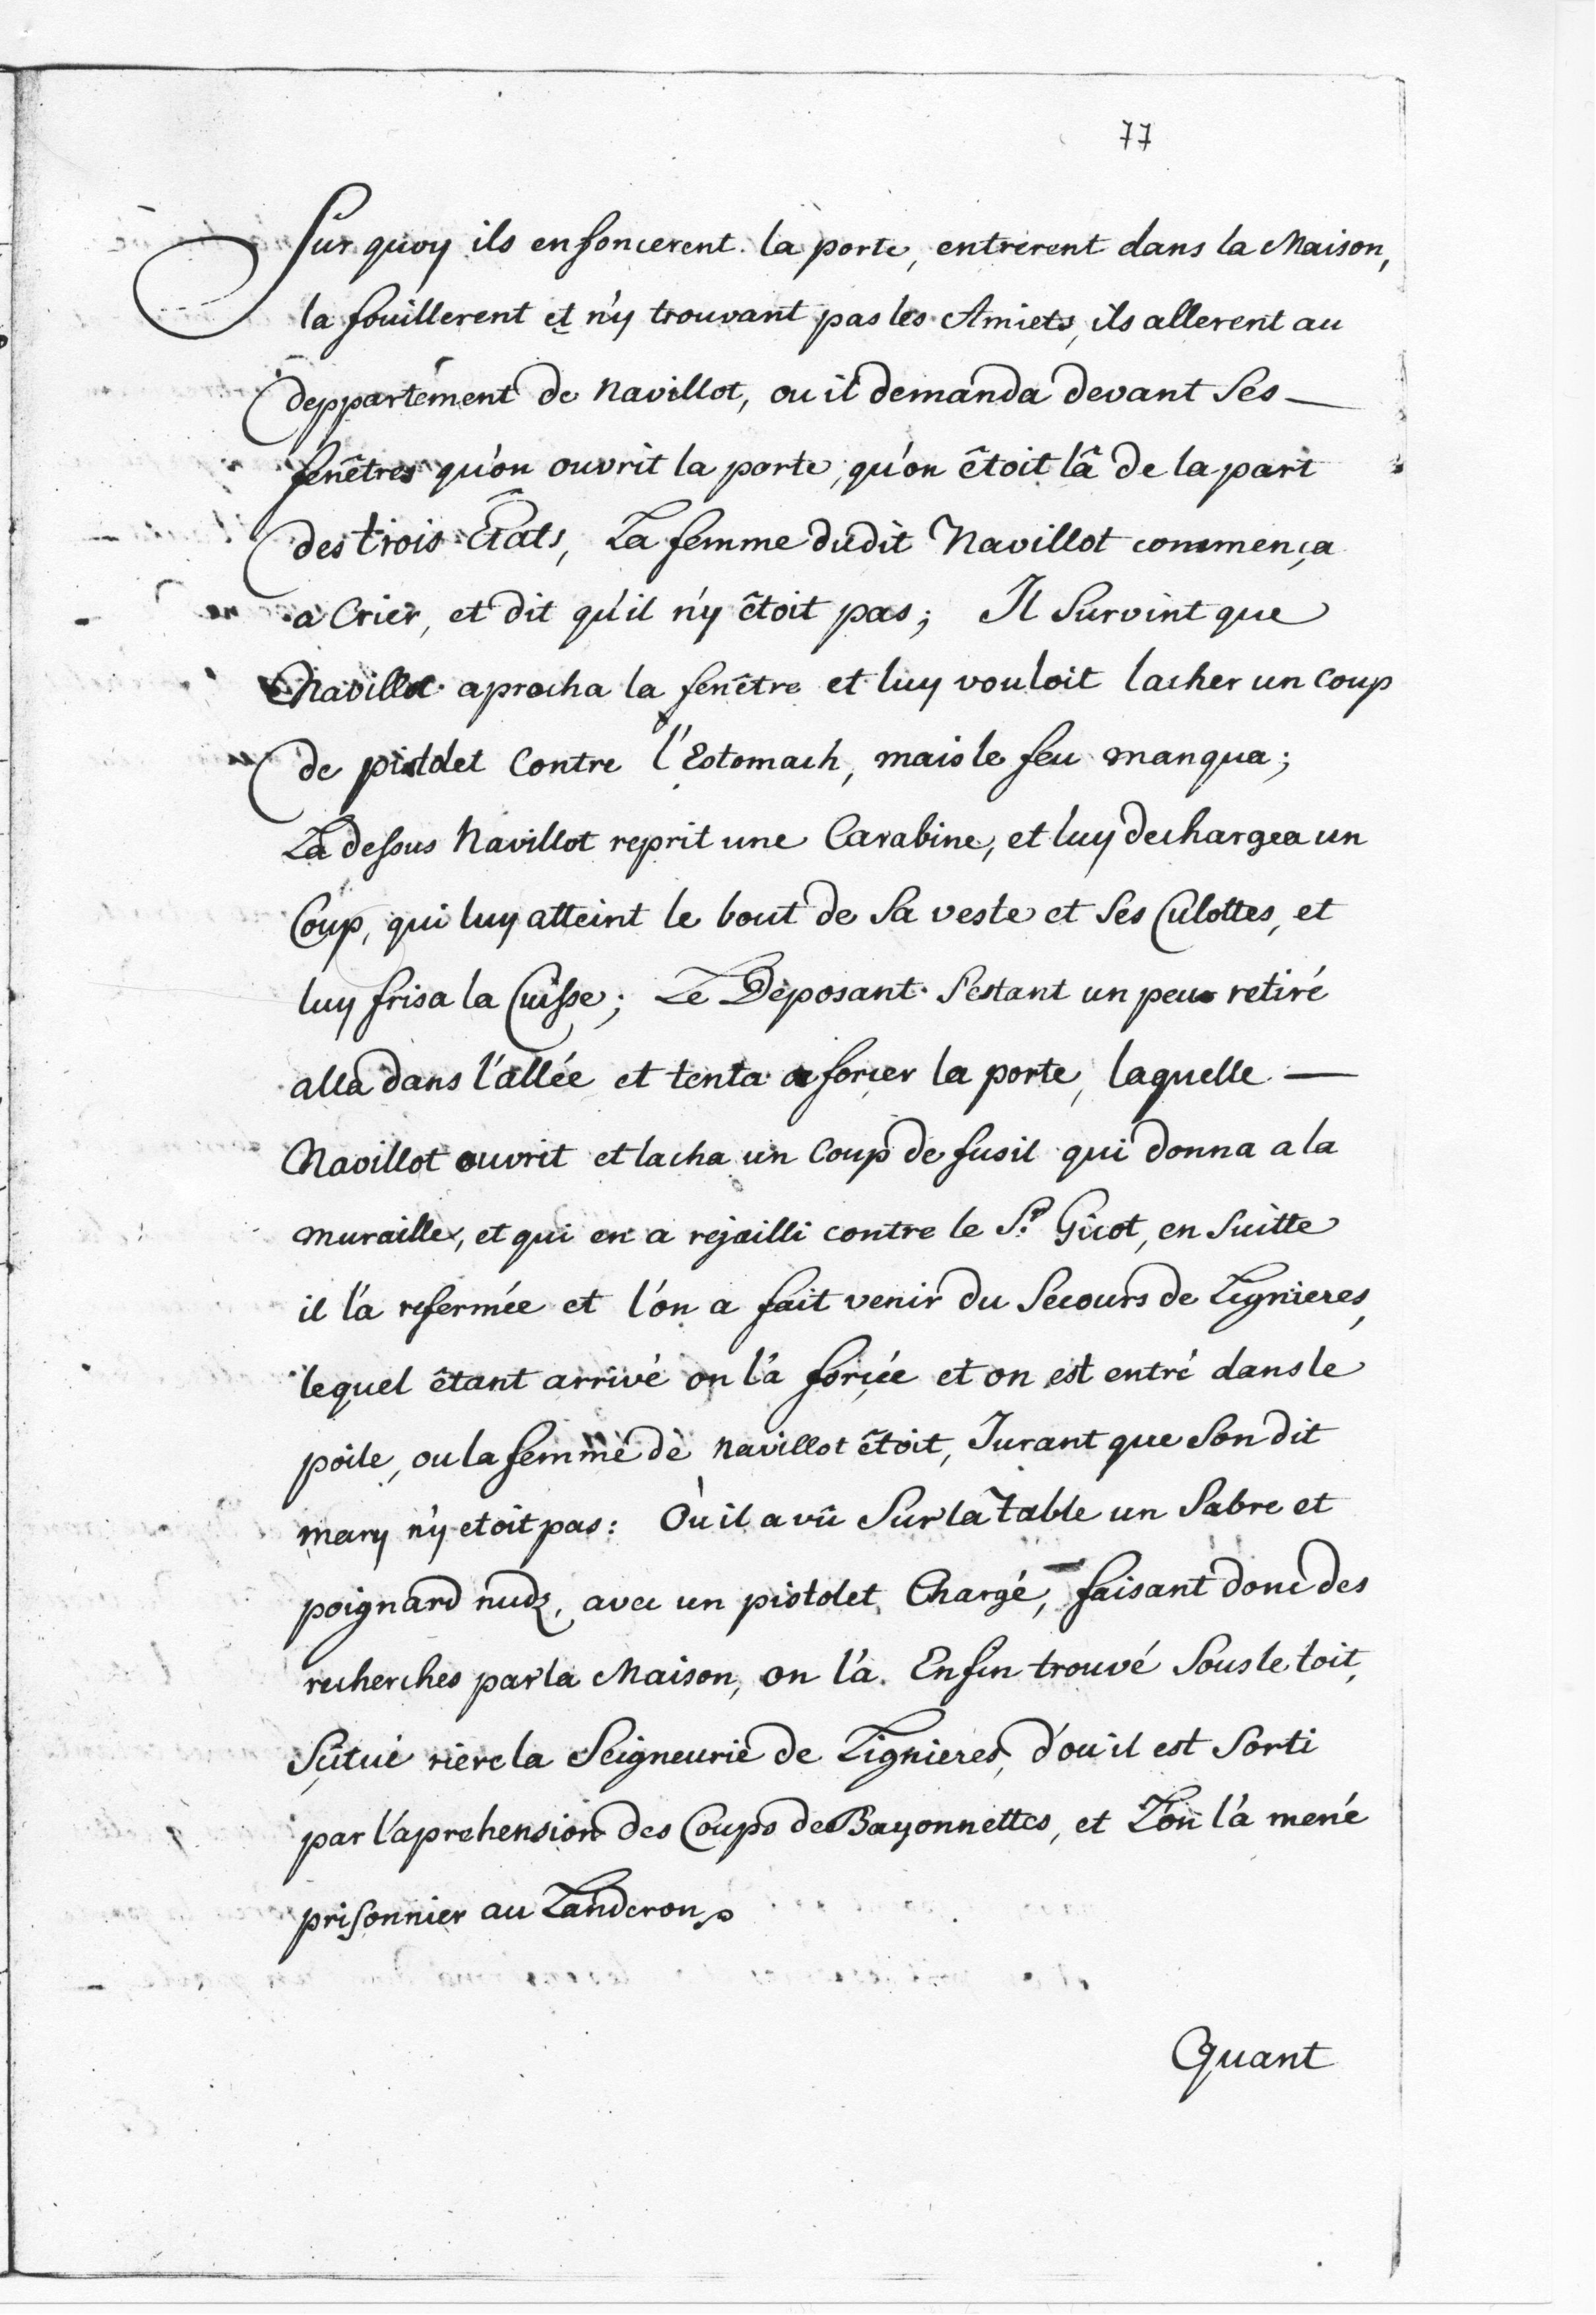 77
Sur quoy ils enfoncerent la porte, entrerent dans la Maison,
la fouillerent et n'y trouvant pas les Amiets, ils allerent au
deppartement de Navillot, ou il demanda devant Ses
fenêtres qu'on ouvrit la porte, qu'on êtoit lâ de la part
des trois Êtats, La femme dudit Navillot commença
a Crier, et dit qu'il n'y êtoit pas; Il Survint que
Navillot aprocha la fenêtre et luy vouloit lacher un Coup
de pistolet Contre l'Estomach, mais le feu manqua;
La dessus Navillot reprit une Carabine, et luy dechargea un
Coup, qui luy atteint le bout de Sa veste et Ses Culottes, et
luy frisa la Cuisse; Le Deposant S'estant un peu retiré
alla dans l'allée et tenta a forcer la porte, laquelle
Navillot ouvrit et lacha un Coup de fusil qui donna a la
muraille, et qui en a rejailli contre le S.r Gicot, en Suitte
il l'a refermée et l'on a fait venir du Secours de Lignieres,
lequel êtant arrivé on l'a forçée et on est entré dans le
poile, ou la femme de Navillot êtoit, Jurant que Son dit
mary n'y etoit pas: Ou il a vû Sur la Table un Sabre et
poignard nudz, avec un pistolet Chargé, faisant donc des
recherches par la Maison, on l'a Enfin trouvé Sous le toit,
Scitué riere la Seigneurie de Lignieres, d'ou il est Sorti
par l'aprehension des Coups de Bayonnettes, et L'on l'a mené
prisonnier au Landeron.
Quant